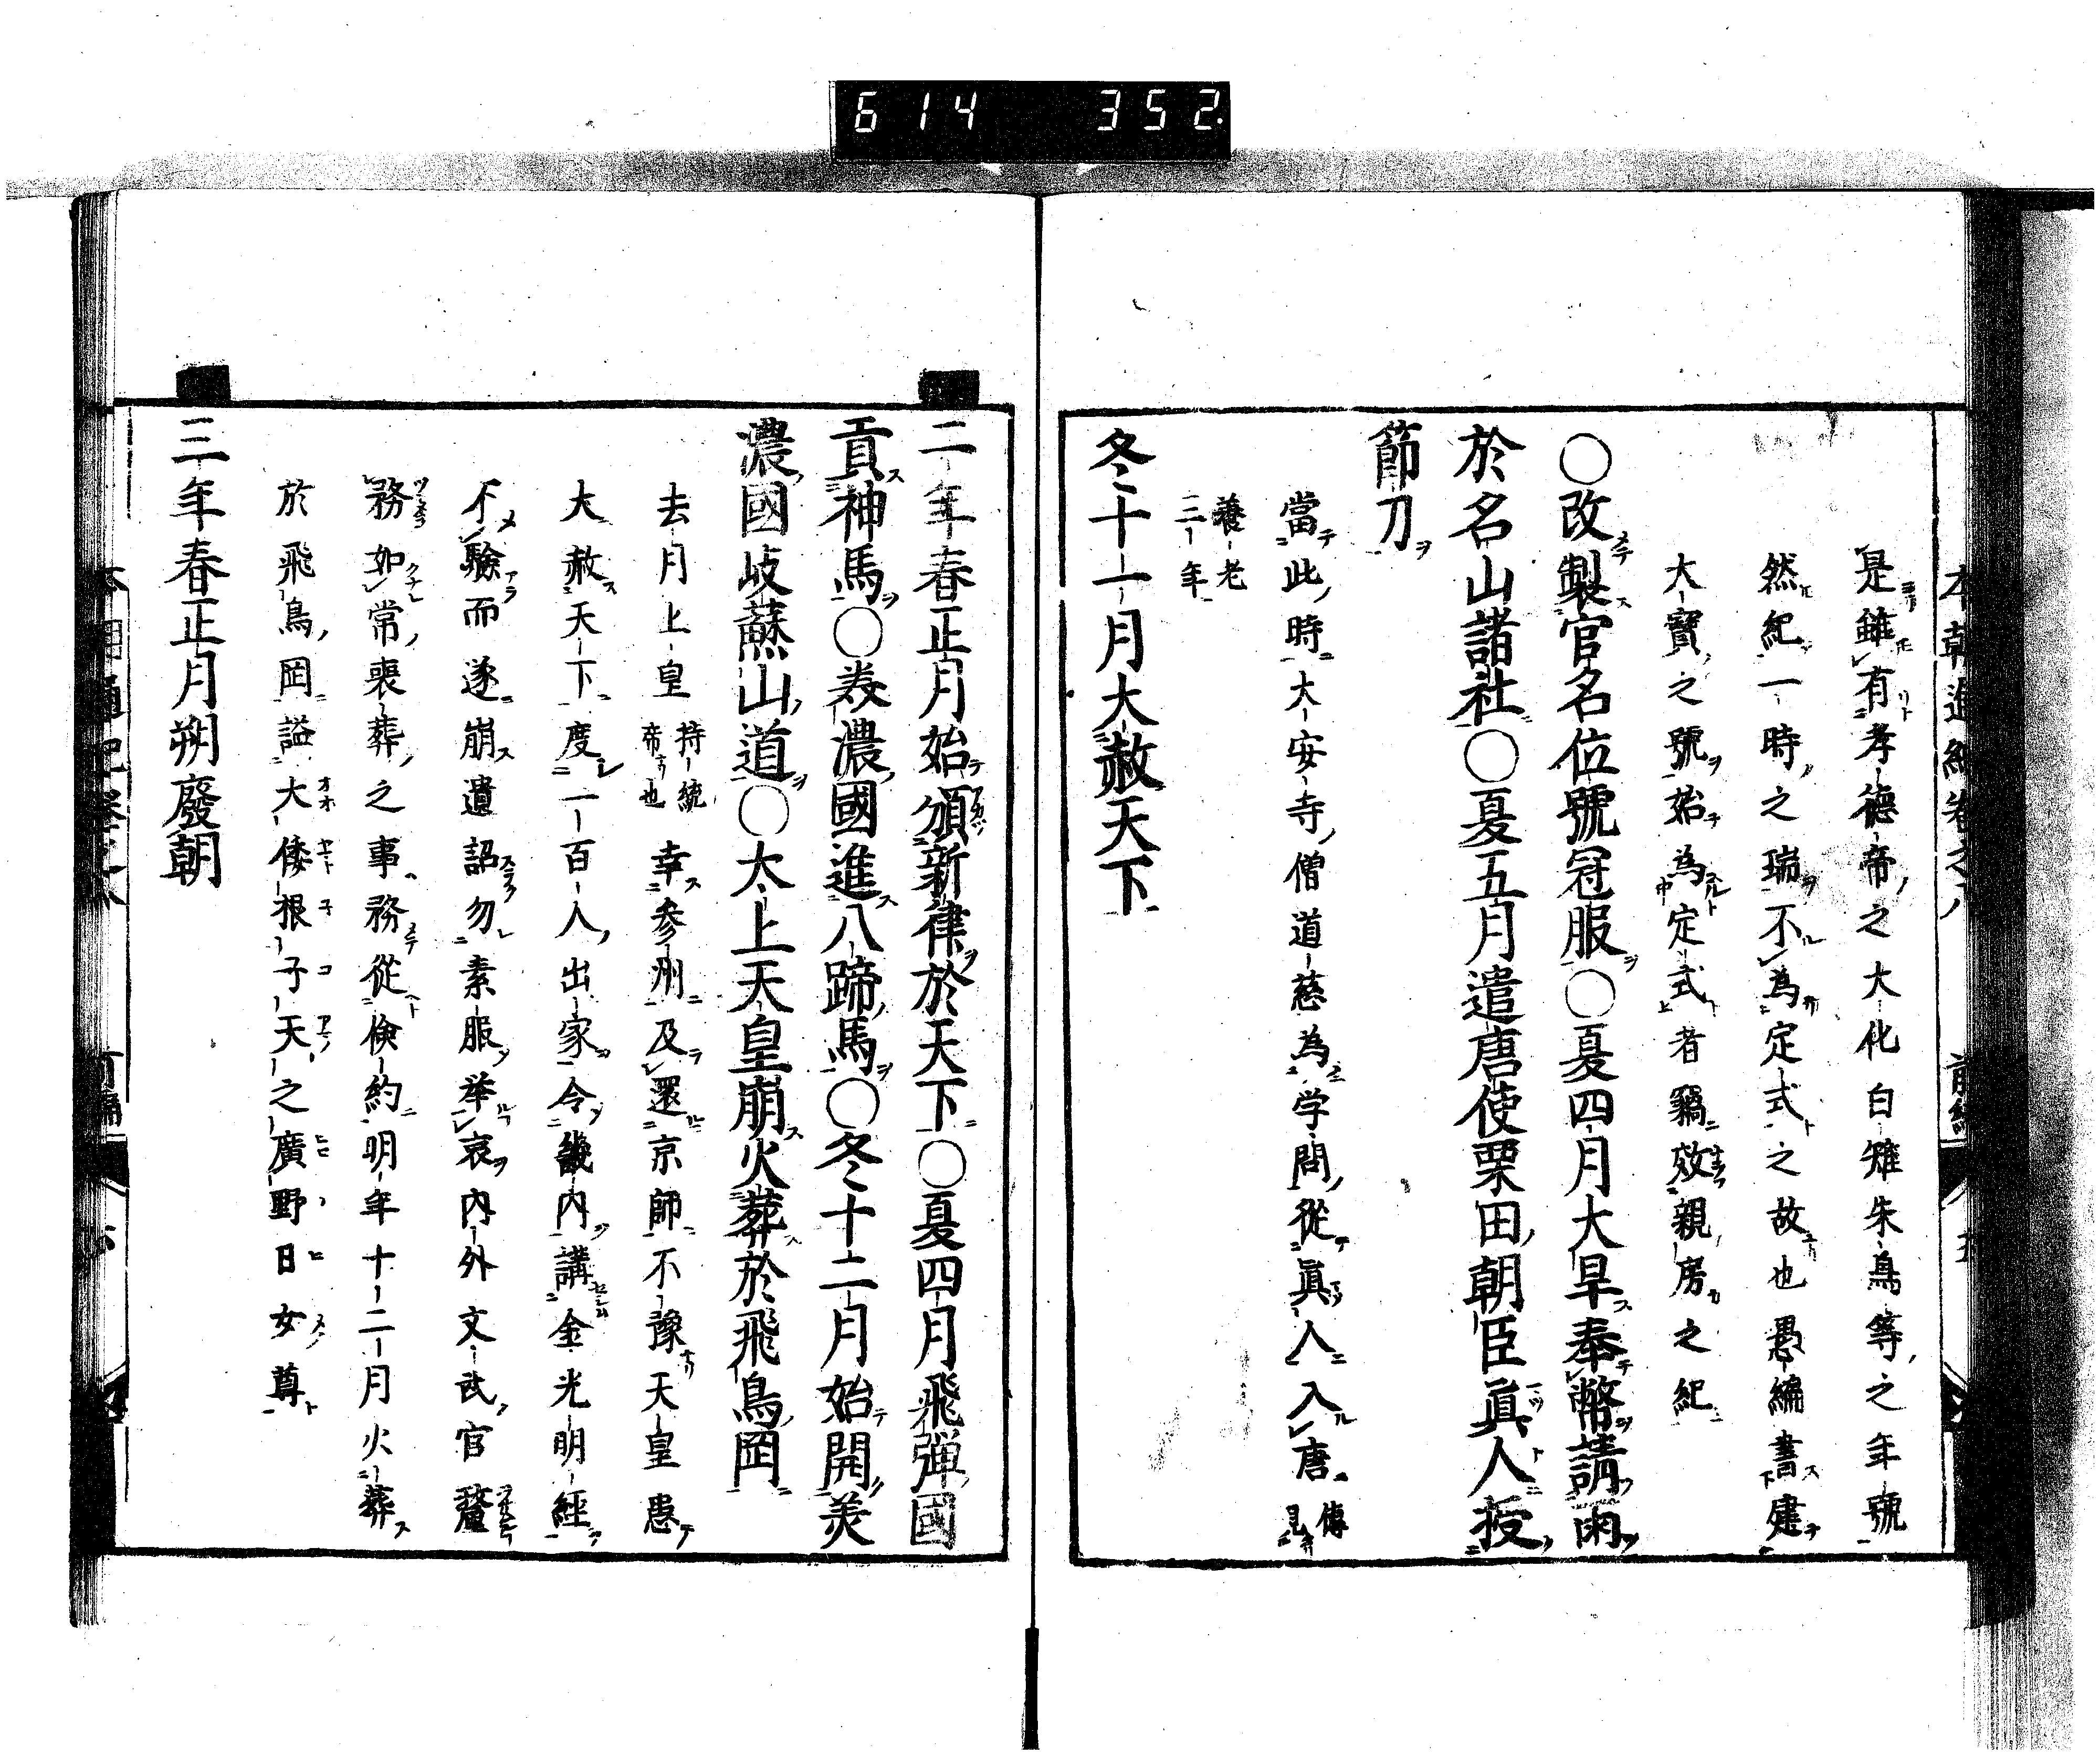 614 352
是雖有孝德帝之大化白雉朱鳥等之年號
然紀一時之瑞不為定式之故也愚編書建
大寶之號始為定式者竊效親房之紀
○改製官名位號冠服○夏四月大旱奉幣請雨
於名山諸社○夏五月遣唐使栗田朝臣眞人授
節刀
當此時大安寺僧道慈為学問從眞人入唐傳見
養老
三年
冬十一月大赦天下
二年春正月始頒新律於天下○夏四月飛彈國
貢神馬○美濃國進八蹄馬○冬十二月始開美
濃國岐蘇山道○太上天皇崩火葬於飛鳥岡
去月上皇持統帝也幸參州及還京師不豫天皇患
大赦天下度一百人出家令畿内講金光明經
不驗而遂崩遺詔勿素服举哀内外文武官釐
務如常喪葬之事務從儉約明年十二月火葬
於飛鳥岡謚大倭根子天之廣野日女尊
三年春正月朔廢朝